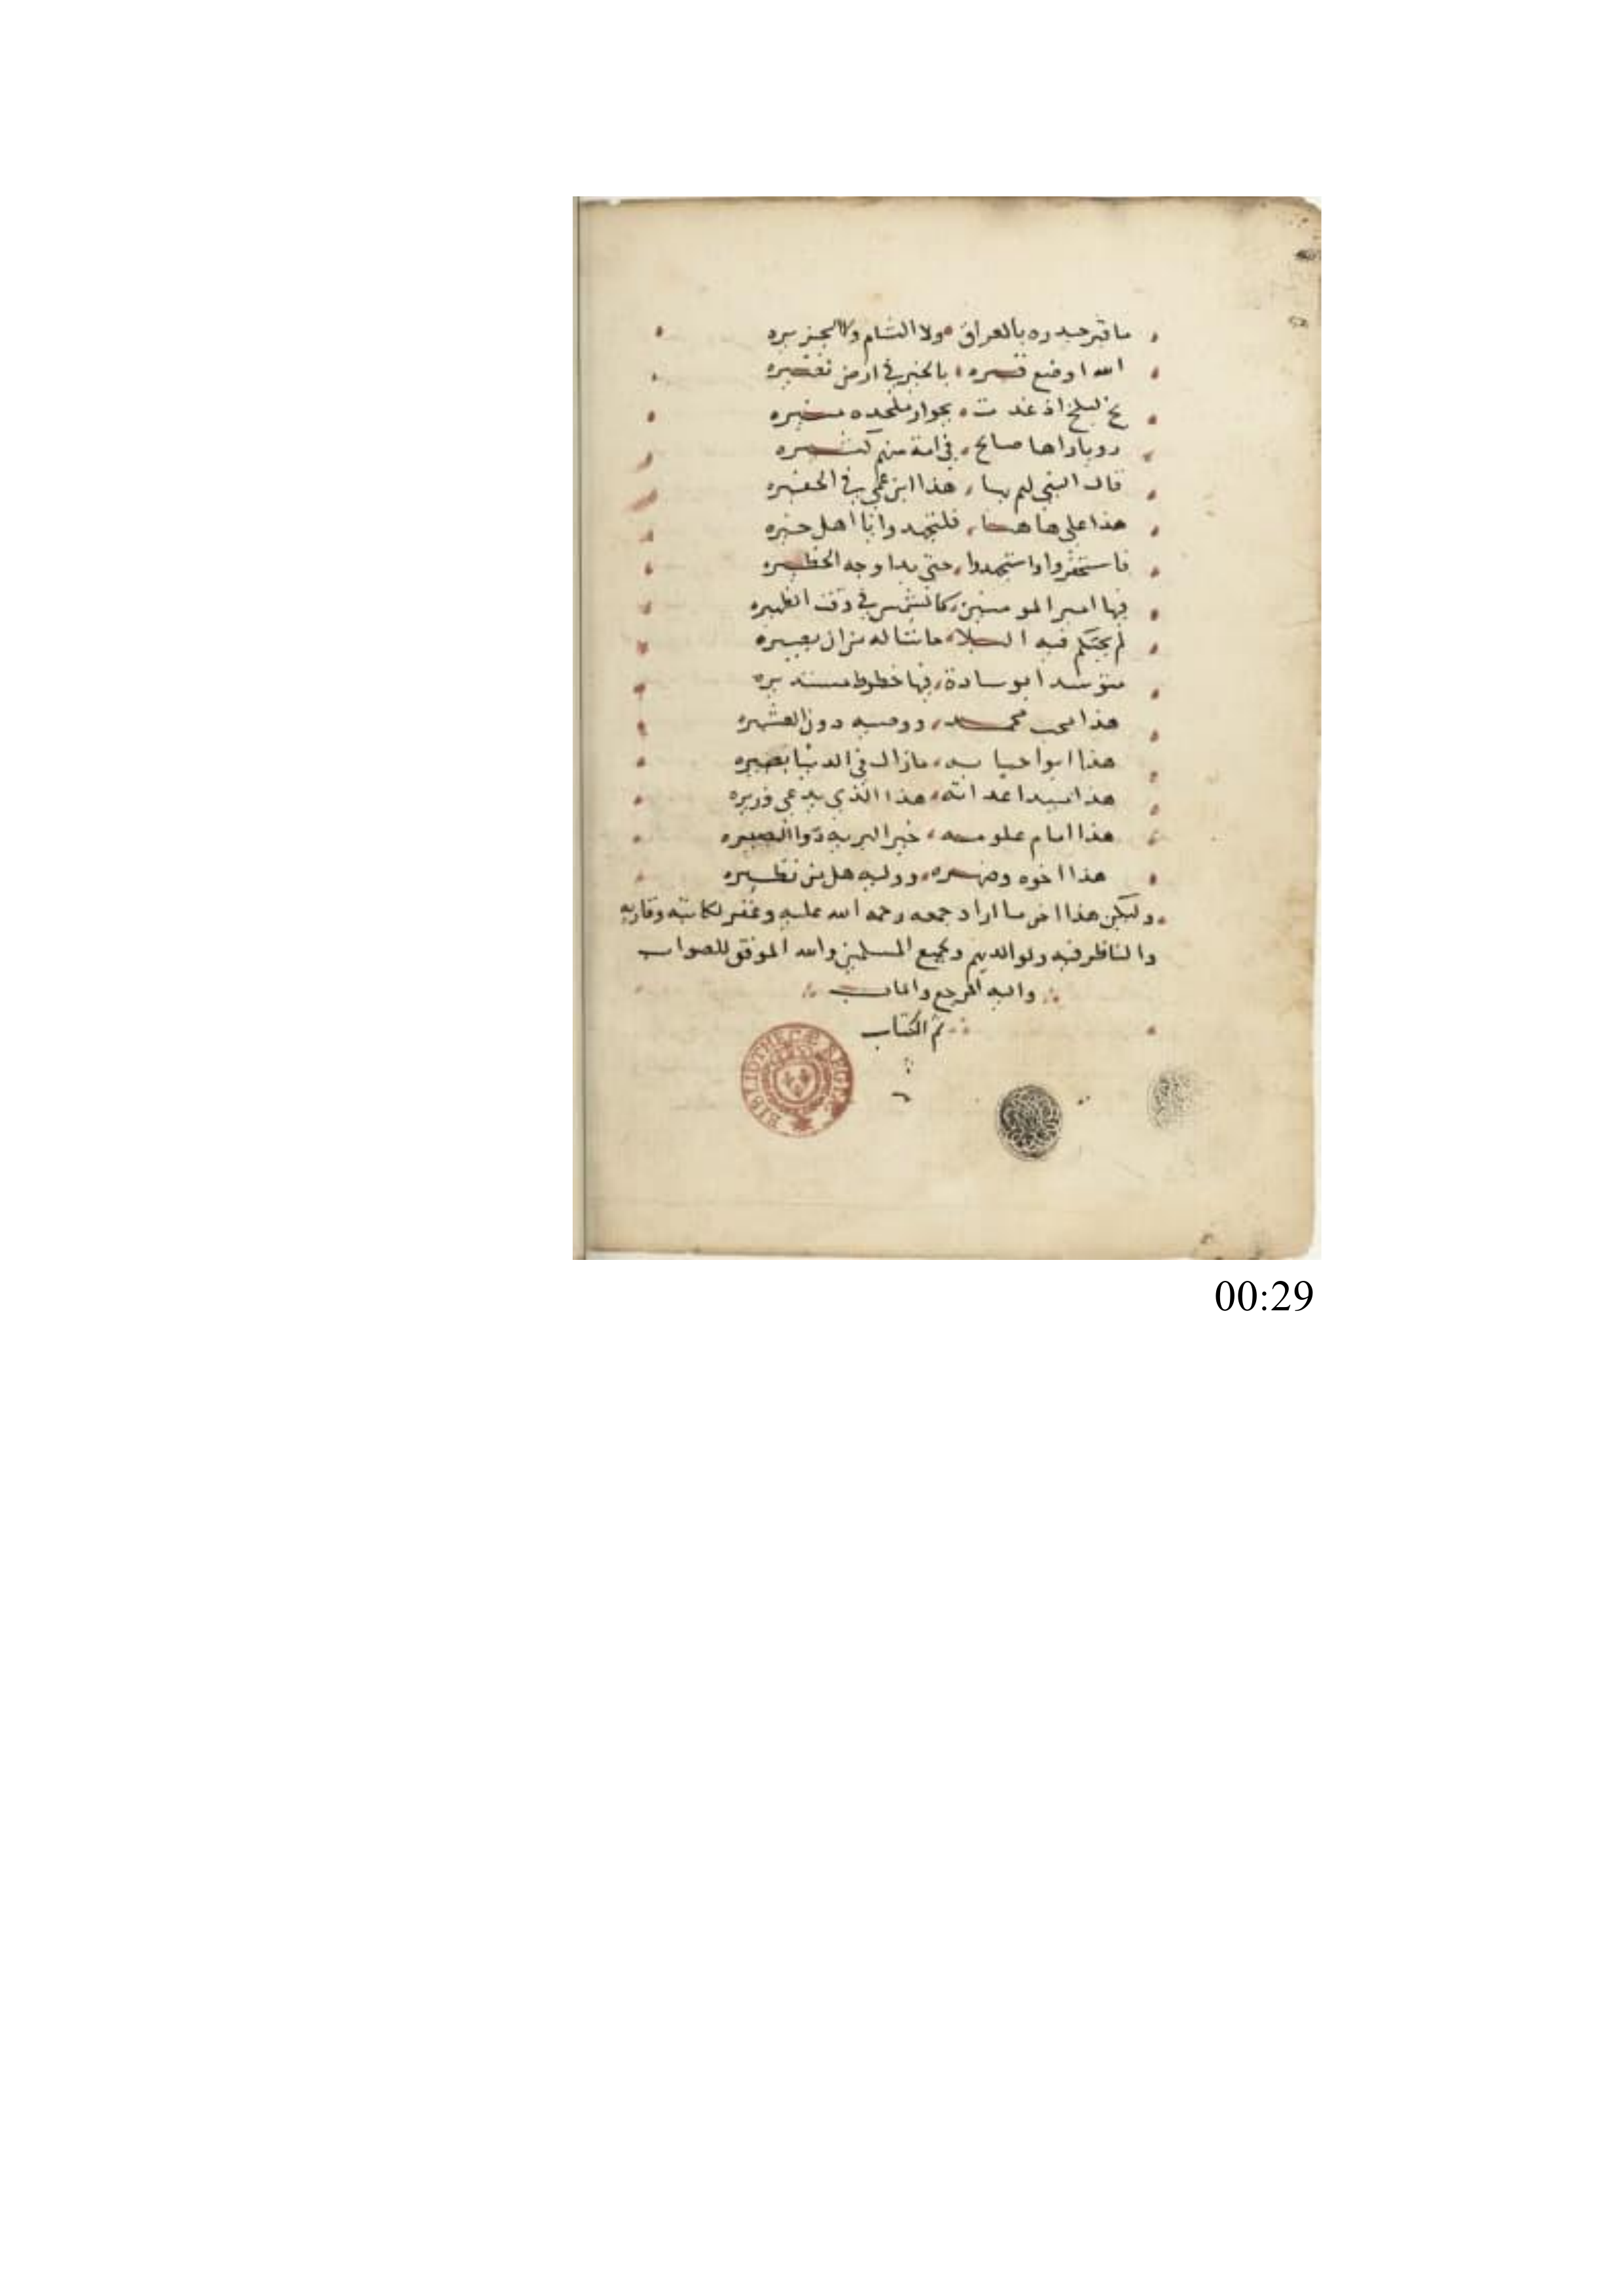 ما قبر حيدره بالعراق ولا الشام ولا الجزيره
الله اوضع قبره بالخير في ارض
بلخ اذ غدت بجوار ملحده
رويا راها صالح في امة منهم كثيره
قال النبي لهم بها هذا ابن عمي في الحفيره
هذا علي ها هنا فلتجهدوا يا اهل خيره
فاستحفروا واستجهدوا حتى بدا وجه الحظيره
فيها امير المومنين كالشمس في وقت الظهيره
لم يحتكم فيه البلا حاشا له من ان يعيره
متوسدا بوسادة فيها خطوط مستديره
هذا محب محمد ووصيه دون العشيره
هذا ابوا ما زال في الدنيا بصيره
هذا الذي يدعى وزيره
هذا امام علومه خير البريه ذوا البصيره
هذا اخوه وصهره ووليه هل من نظيره
وليكن هذا اخر ما اراد جمعه رحمه الله عليه وغفر لكاتبه وقاريه
والناظر فيه ولوالديهم ولجميع المسلمين والله الموفق للصواب
واليه المرجع والماب
تم الكتاب
BIBLIOTHECÆ REGIÆ
00:29